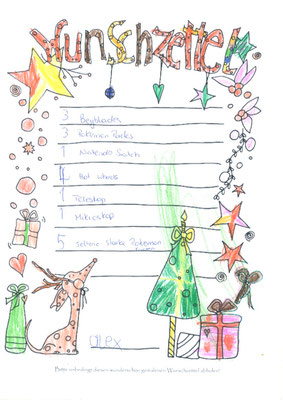 Wunschzettel
3 Beyblades
3 Pokemon Packs
1 Nintendo Switch
4 Hot wheels
1 Teleskop
1 Mikroskop
5 seltene starke Pokemon